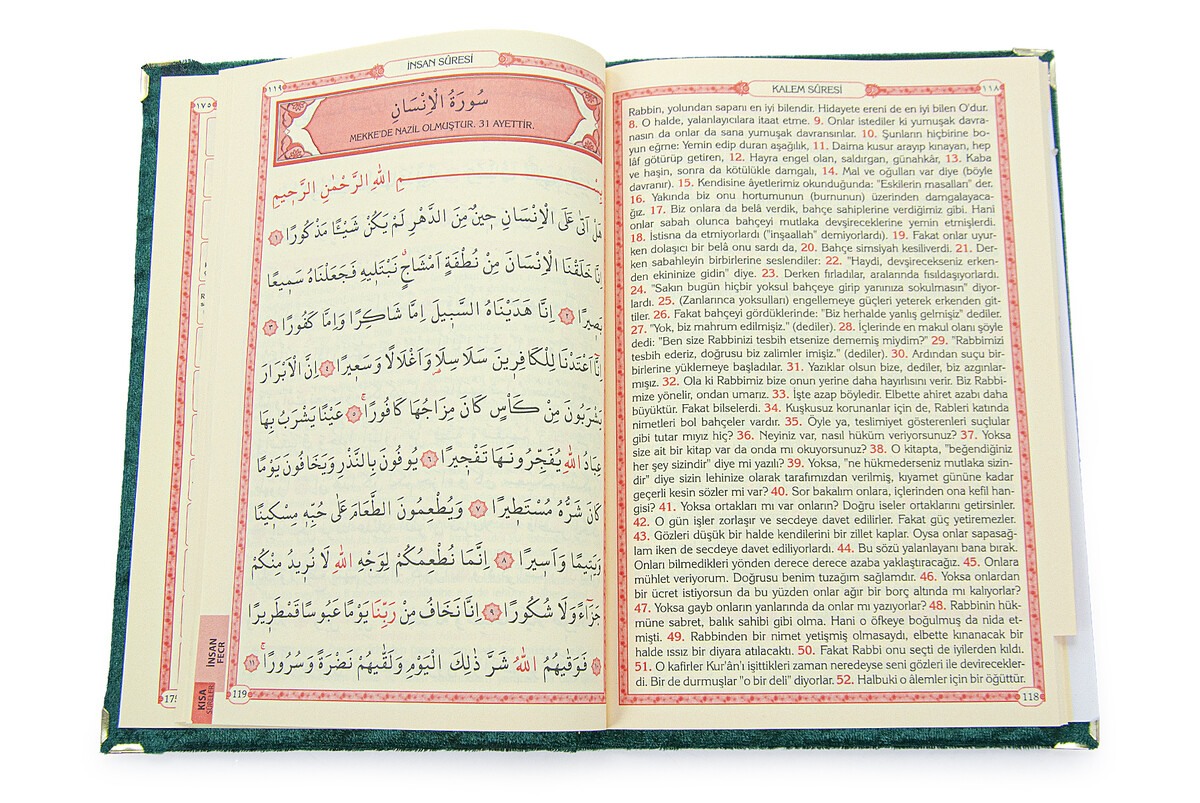 KALEM SÛRESİ
١١٨
Rabbin, yolundan sapanı en iyi bilendir. Hidayete ereni de en iyi bilen O'dur.
8. O halde, yalanlayıcılara itaat etme. 9. Onlar istediler ki yumuşak davra-
nasın da onlar da sana yumuşak davransınlar. 10. Şunların hiçbirine bo-
yun eğme: Yemin edip duran aşağılık, 11. Daima kusur arayıp kınayan, hep
lâf götürüp getiren, 12. Hayra engel olan, saldırgan, günahkâr, 13. Kaba
ve haşin, sonra da kötülükle damgalı, 14. Mal ve oğulları var diye (böyle
davranır). 15. Kendisine âyetlerimiz okunduğunda: "Eskilerin masalları" der.
16. Yakında biz onu hortumunun (burnunun) üzerinden damgalayaca-
ğız. 17. Biz onlara da belâ verdik, bahçe sahiplerine verdiğimiz gibi. Hani
onlar sabah olunca bahçeyi mutlaka devşireceklerine yemin etmişlerdi.
18. İstisna da etmiyorlardı ("inşaallah" demiyorlardı). 19. Fakat onlar uyur-
ken dolaşıcı bir belâ onu sardı da, 20. Bahçe simsiyah kesiliverdi. 21. Der-
ken sabahleyin birbirlerine seslendiler: 22. "Haydi, devşirecekseniz erken-
den ekininize gidin" diye. 23. Derken fırladılar, aralarında fısıldaşıyorlardı.
24. "Sakın bugün hiçbir yoksul bahçeye girip yanınıza sokulmasın" diyor-
lardı. 25. (Zanlarınca yoksulları) engellemeye güçleri yeterek erkenden git-
tiler. 26. Fakat bahçeyi gördüklerinde: "Biz herhalde yanlış gelmişiz" dediler.
27. "Yok, biz mahrum edilmişiz." (dediler). 28. İçlerinde en makul olanı şöyle
dedi: "Ben size Rabbinizi tesbih etsenize dememiş miydim?" 29. "Rabbimizi
tesbih ederiz, doğrusu biz zalimler imişiz." (dediler). 30. Ardından suçu bir-
birlerine yüklemeye başladılar. 31. Yazıklar olsun bize, dediler, biz azgınlar-
mışız. 32. Ola ki Rabbimiz bize onun yerine daha hayırlısını verir. Biz Rabbi-
mize yönelir, ondan umarız. 33. İşte azap böyledir. Elbette ahiret azabı daha
büyüktür. Fakat bilselerdi. 34. Kuşkusuz korunanlar için de, Rableri katında
nimetleri bol bahçeler vardır. 35. Öyle ya, teslimiyet gösterenleri suçlular
gibi tutar mıyız hiç? 36. Neyiniz var, nasıl hüküm veriyorsunuz? 37. Yoksa
size ait bir kitap var da onda mı okuyorsunuz? 38. O kitapta, "beğendiğiniz
her şey sizindir" diye mi yazılı? 39. Yoksa, "ne hükmederseniz mutlaka sizin-
dir" diye sizin lehinize olarak tarafımızdan verilmiş, kıyamet gününe kadar
geçerli kesin sözler mi var? 40. Sor bakalım onlara, içlerinden ona kefil han-
gisi? 41. Yoksa ortakları mı var onların? Doğru iseler ortaklarını getirsinler.
42. O gün işler zorlaşır ve secdeye davet edilirler. Fakat güç yetiremezler.
43. Gözleri düşük bir halde kendilerini bir zillet kaplar. Oysa onlar sapasağ-
lam iken de secdeye davet ediliyorlardı. 44. Bu sözü yalanlayanı bana bırak.
Onları bilmedikleri yönden derece derece azaba yaklaştıracağız. 45. Onlara
mühlet veriyorum. Doğrusu benim tuzağım sağlamdır. 46. Yoksa onlardan
bir ücret istiyorsun da bu yüzden onlar ağır bir borç altında mı kalıyorlar?
47. Yoksa gayb onların yanlarında da onlar mı yazıyorlar? 48. Rabbinin hük-
müne sabret, balık sahibi gibi olma. Hani o öfkeye boğulmuş da nida et-
mişti. 49. Rabbinden bir nimet yetişmiş olmasaydı, elbette kınanacak bir
halde ıssız bir diyara atılacaktı. 50. Fakat Rabbi onu seçti de iyilerden kıldı.
51. O kafirler Kur'ân'ı işittikleri zaman neredeyse seni gözleri ile devirecekler-
di. Bir de durmuşlar "o bir deli" diyorlar. 52. Halbuki o âlemler için bir öğüttür.
118
١١٩
İNSAN SÛRESİ
سُورَةُ الْاِنْسَانِ
MEKKE'DE NAZİL OLMUŞTUR. 31 AYETTİR.
بِسْمِ اللّٰهِ الرَّحْمٰنِ الرَّح۪يمِ
هَلْ اَتٰى عَلَى الْاِنْسَانِ ح۪ينٌ مِنَ الدَّهْرِ لَمْ يَكُنْ شَيْـًٔا مَذْكُورًا ﴿١﴾
اِنَّا خَلَقْنَا الْاِنْسَانَ مِنْ نُطْفَةٍ اَمْشَاجٍۗ نَبْتَل۪يهِ فَجَعَلْنَاهُ سَم۪يعًا
بَص۪يرًا ﴿٢﴾ اِنَّا هَدَيْنَاهُ السَّب۪يلَ اِمَّا شَاكِرًا وَاِمَّا كَفُورًا ﴿٣﴾
اِنَّٓا اَعْتَدْنَا لِلْكَافِر۪ينَ سَلَاسِلَا۬ وَاَغْلَالًا وَسَع۪يرًا ﴿٤﴾ اِنَّ الْاَبْرَارَ
يَشْرَبُونَ مِنْ كَأْسٍ كَانَ مِزَاجُهَا كَافُورًاۚ ﴿٥﴾ عَيْنًا يَشْرَبُ بِهَا
عِبَادُ اللّٰهِ يُفَجِّرُونَهَا تَفْج۪يرًا ﴿٦﴾ يُوفُونَ بِالنَّذْرِ وَيَخَافُونَ يَوْمًا
كَانَ شَرُّهُ مُسْتَط۪يرًا ﴿٧﴾ وَيُطْعِمُونَ الطَّعَامَ عَلٰى حُبِّه۪ مِسْك۪ينًا
وَيَت۪يمًا وَاَس۪يرًا ﴿٨﴾ اِنَّمَا نُطْعِمُكُمْ لِوَجْهِ اللّٰهِ لَا نُر۪يدُ مِنْكُمْ
جَزَٓاءً وَلَا شُكُورًا ﴿٩﴾ اِنَّا نَخَافُ مِنْ رَبِّنَا يَوْمًا عَبُوسًا قَمْطَر۪يرًا
فَوَقٰيهُمُ اللّٰهُ شَرَّ ذٰلِكَ الْيَوْمِ وَلَقّٰيهُمْ نَضْرَةً وَسُرُورًاۚ ﴿١١﴾
119
İNSAN
FECR
KISA
SÛRELER
١٧٥
175